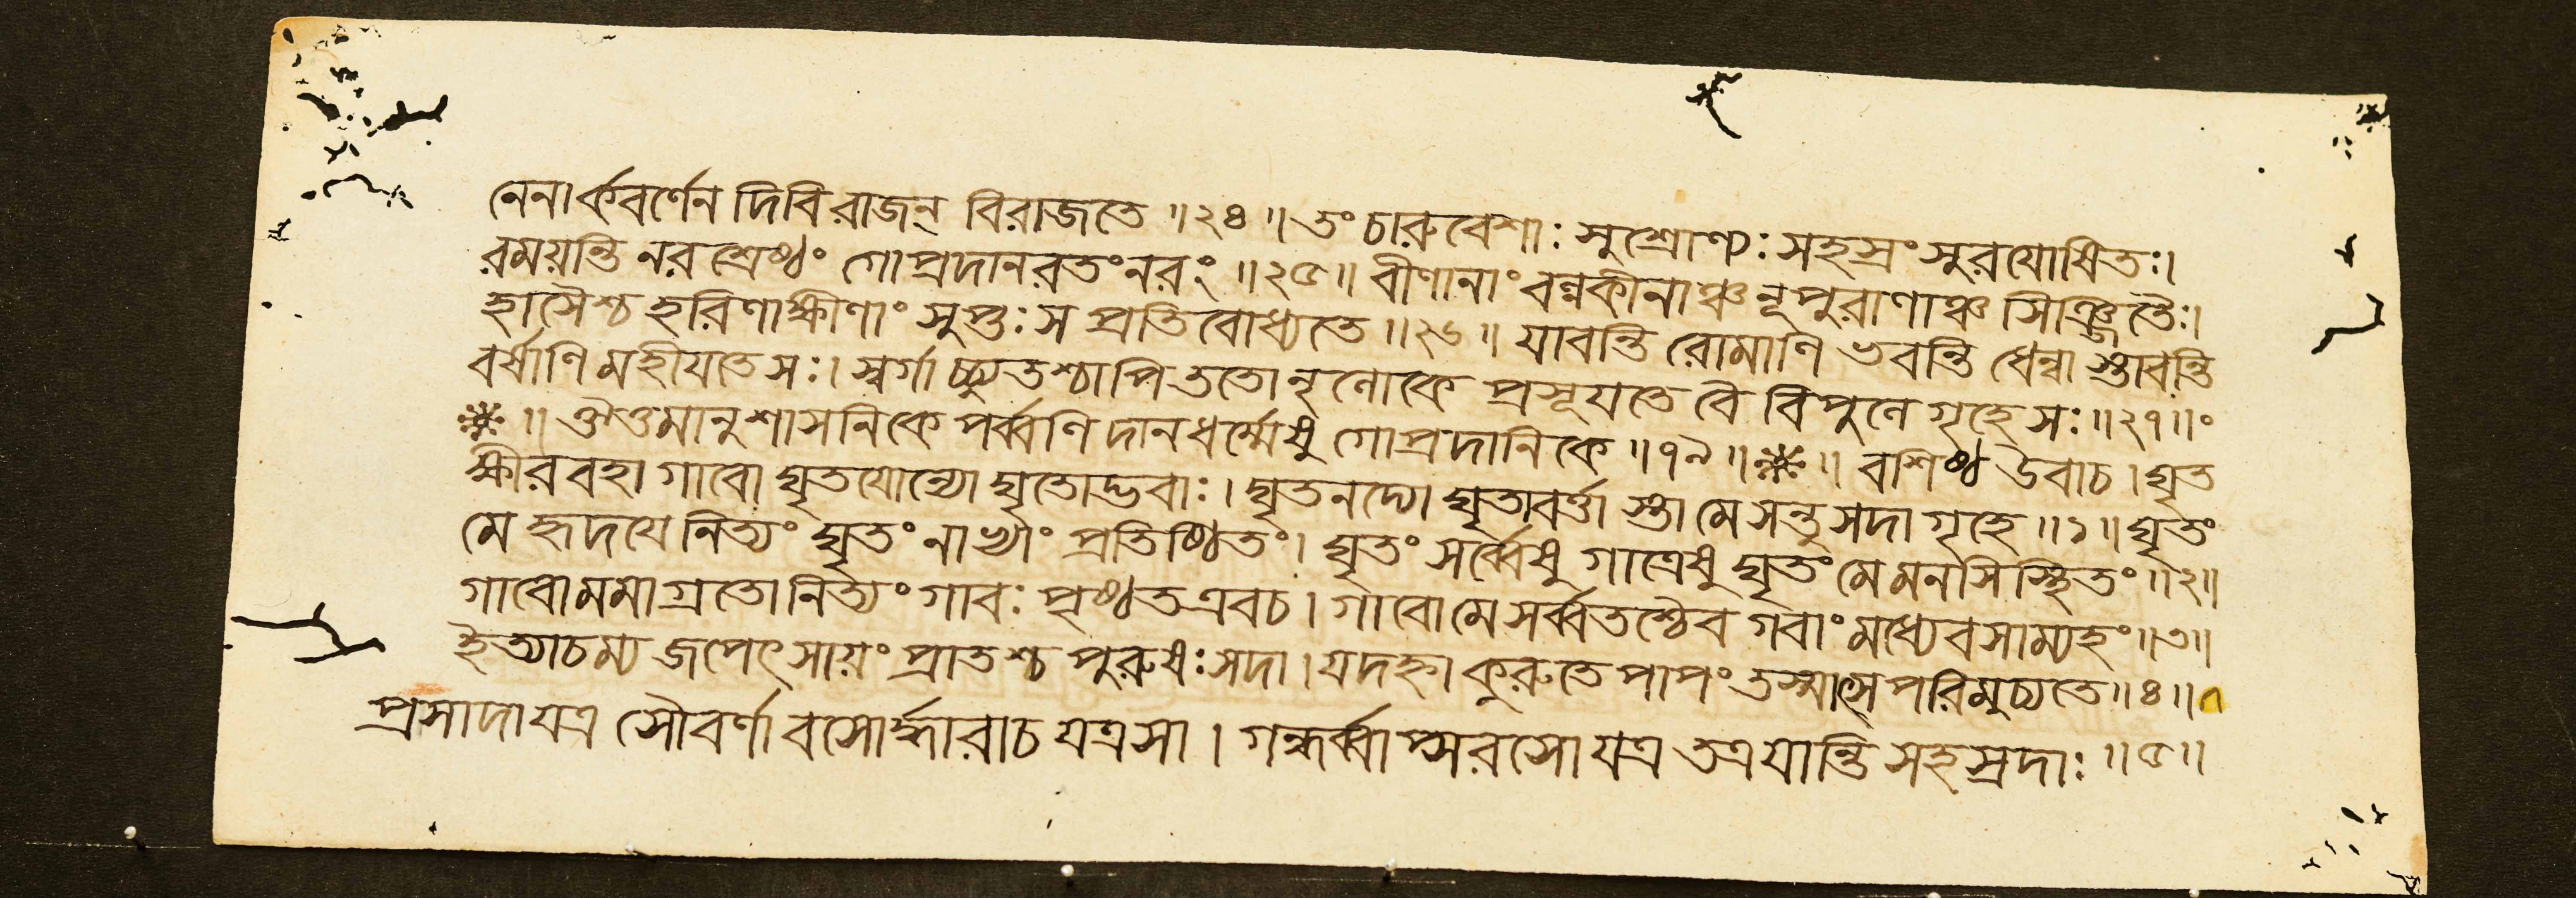 নেনার্কবর্ণেন দিবি রাজন্ বিরাজতে ॥২৪॥ তং চারুবেশাঃ সুশ্রোণ্যঃ সহস্রং সুরযোষিতঃ।
রময়ন্তি নরশ্রেষ্ঠং গোপ্রদানরতং নরং ॥২৫॥ বীণানাং বল্লকীনাঞ্চ নূপুরাণাঞ্চ সিঞ্জিতৈঃ।
হাসৈশ্চ হরিণাক্ষীণাং সুপ্তঃ স প্রতিবোধ্যতে ॥২৬॥ যাবন্তি রোমাণি ভবন্তি ধেন্বা স্তাবন্তি
বর্ষাণি মহীযতে সঃ। স্বর্গাচ্চ্যুতশ্চাপি ততো নৃলোকে প্রসূযতে বৈ বিপুলে গৃহে সঃ ॥২৭॥
॥ ঔওমানুশাসনিকে পর্ব্বণি দানধর্ম্মেষু গোপ্রদানিকে ॥৭৯॥ ॥ বশিষ্ঠ উবাচ। ঘৃত
ক্ষীরবহা গাবো ঘৃতযোন্যো ঘৃতোদ্ভবাঃ। ঘৃতনদ্যো ঘৃতাবর্ত্তা স্তা মে সন্তু সদা গৃহে ॥১॥ ঘৃতং
মে হৃদযে নিত্যং ঘৃতং নাভ্যাং প্রতিষ্ঠিতং। ঘৃতং সর্ব্বেষু গাত্রেষু ঘৃতং মে মনসি স্থিতং ॥২॥
গাবো মমাগ্রতো নিত্যং গাবঃ পৃষ্ঠত এব চ। গাবো মে সর্ব্বতশ্চৈব গবাং মধ্যে বসাম্যহং ॥৩॥
ইত্যাচম্য জপেৎ সায়ং প্রাতশ্চ পুরুষঃ সদা। যদহ্না কুরুতে পাপং তস্মাৎস পরিমুচ্যতে ॥৪॥
প্রসাদা যত্র সৌবর্ণা বসোর্দ্ধারা চ যত্র সা। গন্ধর্ব্বাপ্সরসো যত্র তত্র যান্তি সহস্রদাঃ ॥৫॥